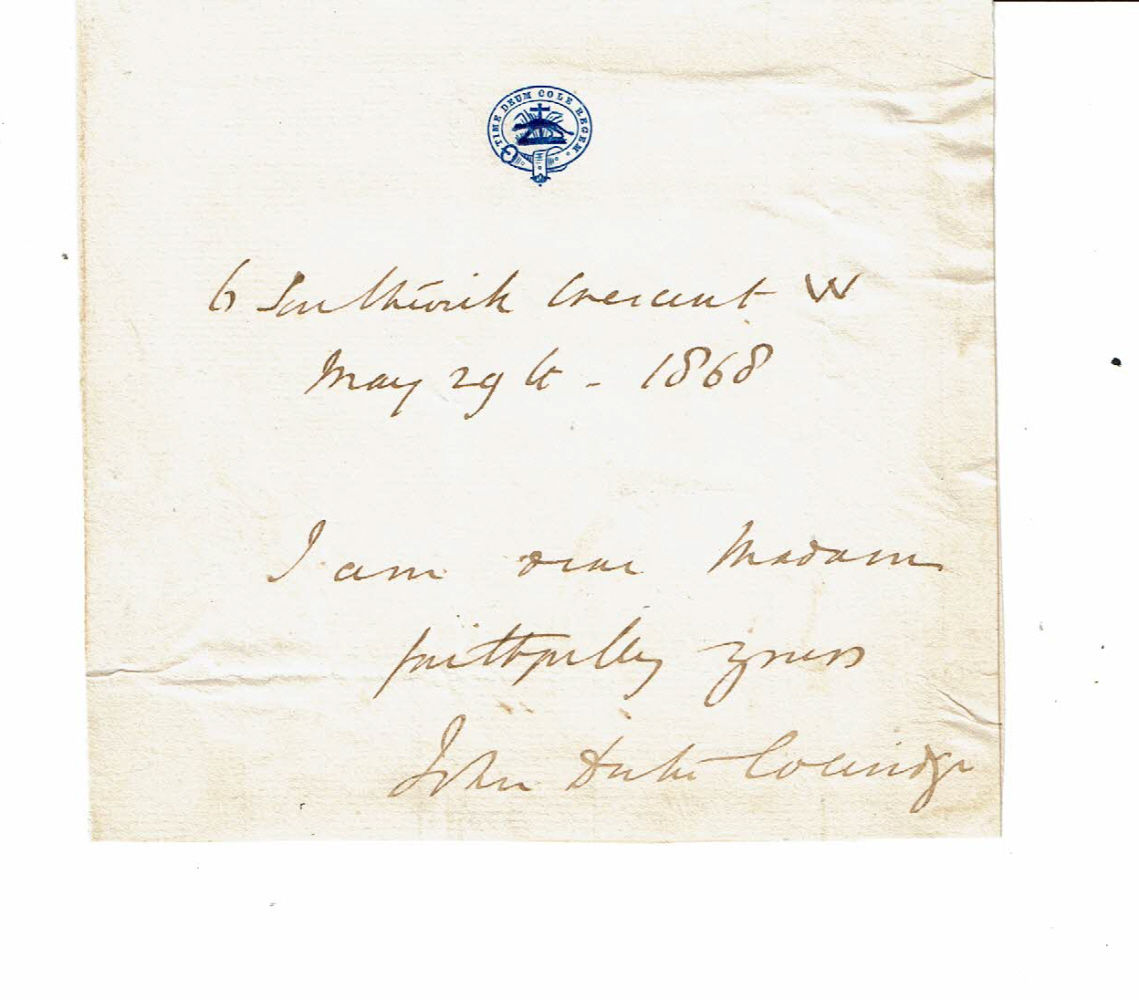 TIME DEUM COLE REGEM
6 Southwick Crescent W
May 29th - 1868
I am dear Madam
faithfully yours
John Duke Coleridge